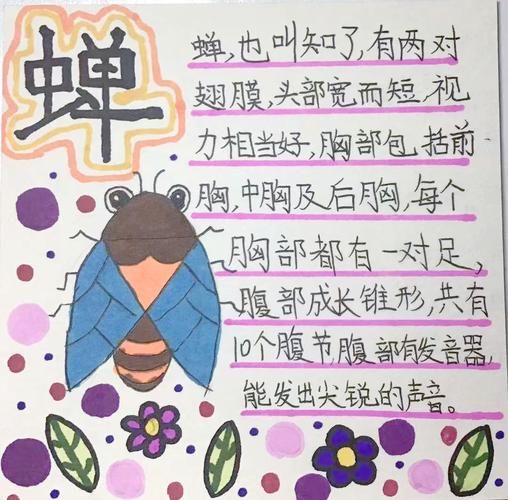 蝉
蝉,也叫知了,有两对
翅膜,头部宽而短,视
力相当好,胸部包括前
胸,中胸及后胸,每个
胸部都有一对足,
腹部成长锥形,共有
10个腹节,腹部有发音器,
能发出尖锐的声音。